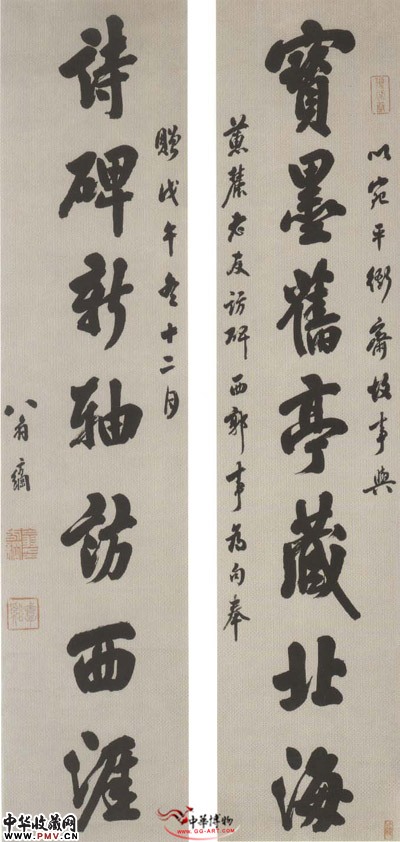 以宛平衙齋故事與
寶墨舊亭藏北海
蕙麓老友訪碑西郭事為句奉
贈戊午冬十二月
詩碑新軸訪西涯
八翁
中华收藏网
www.PMV.cn
中華博物
www.gg-art.com